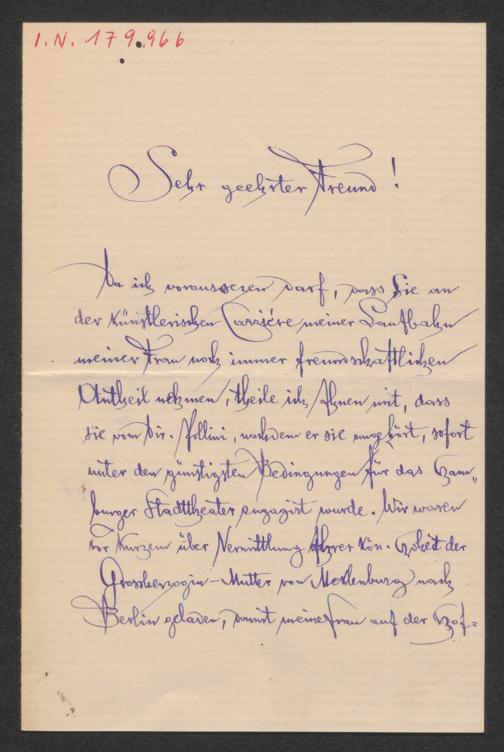 I.N. 179.966
Sehr geehrter Freund!
Da ich voraussezen darf, dass Sie an
der künstlerischen Carriére meiner Laufbahn
meiner Frau noch immer freundschaftlichen
Antheil nehmen, theile ich Ihnen mit, dass
sie vom Dir. Pollini, nachdem er sie angehört, sofort
unter den günstigsten Bedingungen für das Ham„
burger Stadttheater engagirt wurde. Wir waren
vor Kurzem über Vermittlung Ihrer Kön. Hoheit der
Grossherzogin-Mutter von Meklenburg nach
Berlin geladen, damit meine Frau auf der Hof=